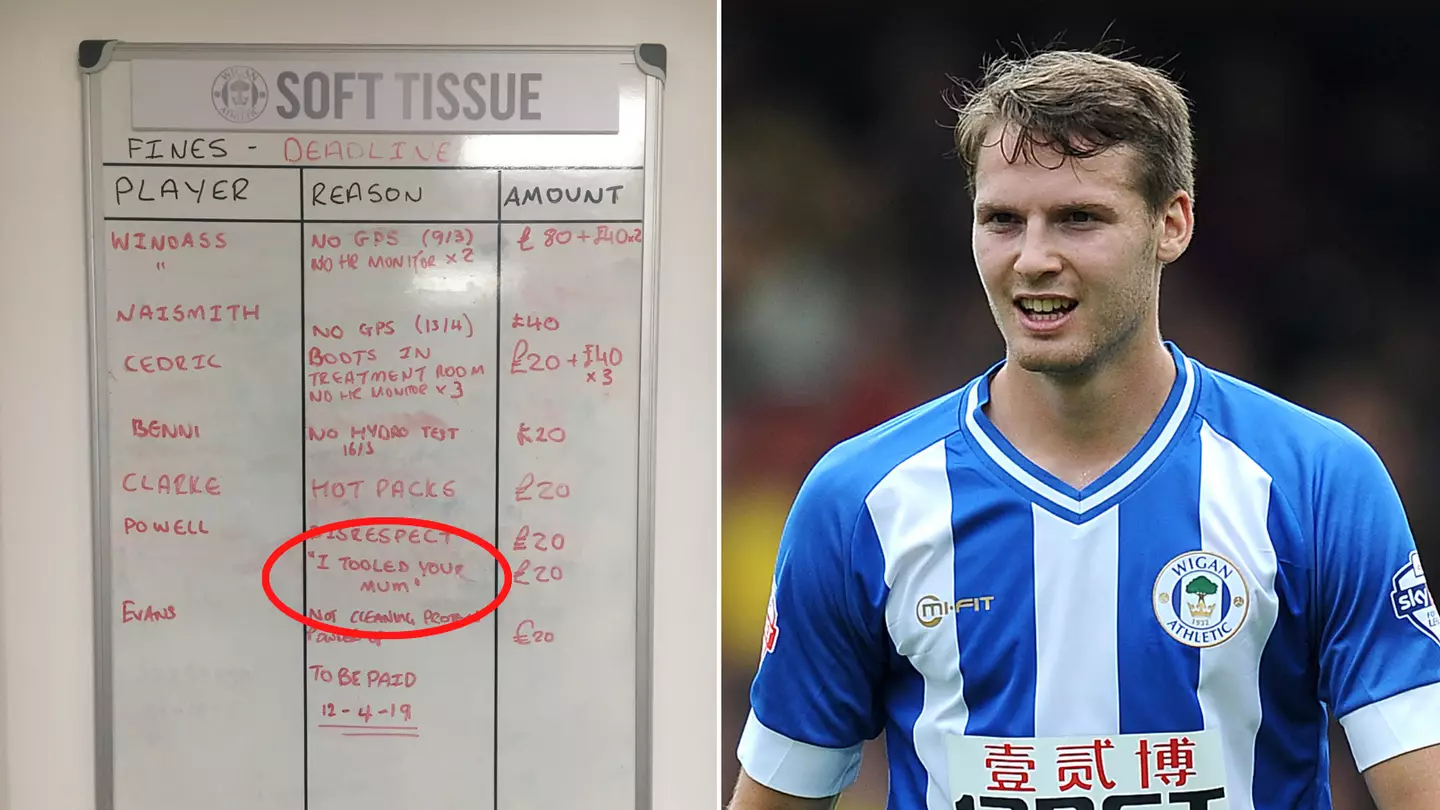 WIGAN
ATHLETIC
SOFT TISSUE
FINES - DEADLINE
PLAYER REASON AMOUNT
WINDASS NO GPS (9/3) £80+£40x2
" NO HR MONITOR x2
NAISMITH NO GPS (13/4) £40
CEDRIC BOOTS IN £20+£40
TREATMENT ROOM x3
NO HR MONITOR x3
BENNI NO HYDRO TEST £20
16/3
CLARKE HOT PACKS £20
POWELL DISRESPECT £20
"I TOOLED YOUR £20
MUM"
EVANS NOT CLEANING
£20
TO BE PAID
12-4-19
Mi-FIT
WIGAN
1932
ATHLETIC
sky
壹贰博
12BET